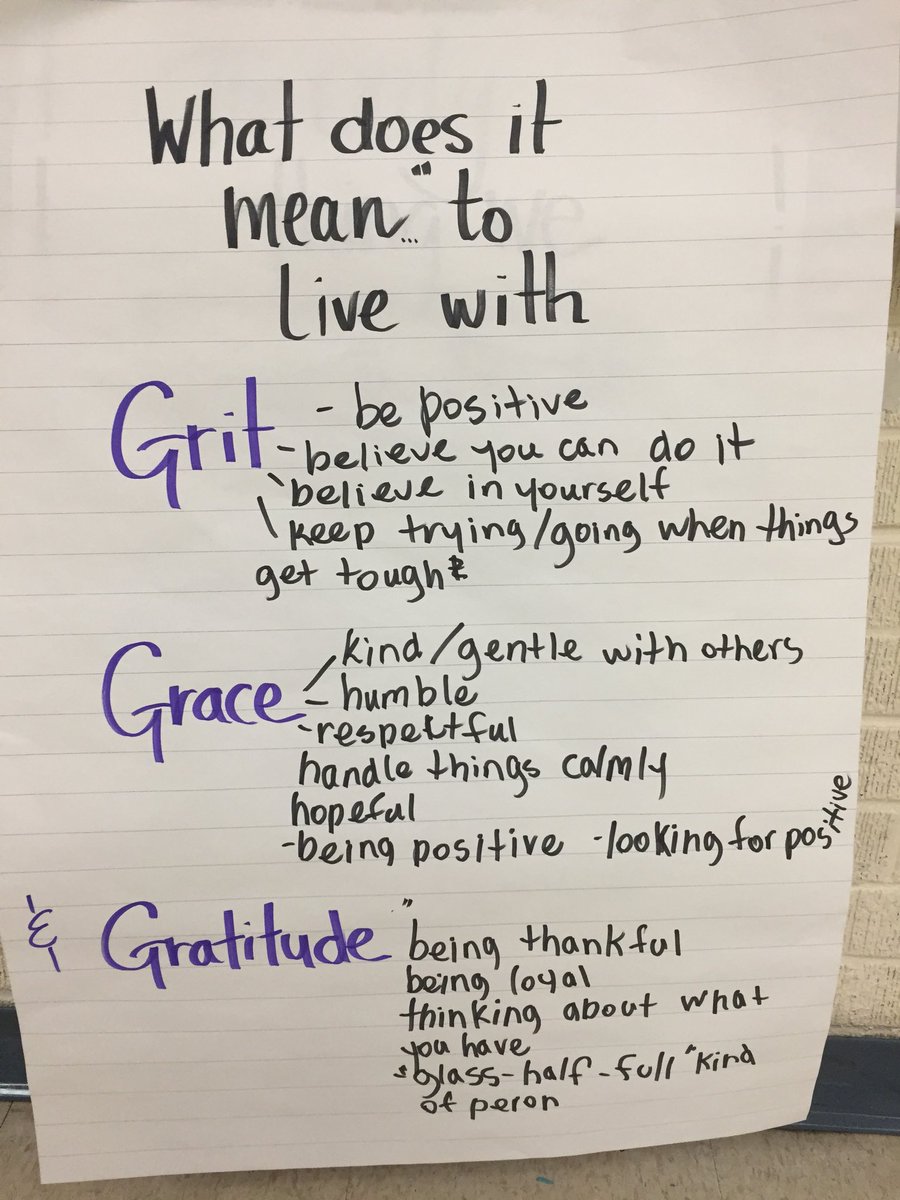 What does it
mean..." to
Live with
Grit - be positive
- believe you can do it
believe in yourself
keep trying/going when things
get tough
Grace kind/gentle with others
- humble
- respectful
handle things calmly
hopeful
-being positive -looking for positive
& Gratitude being thankful
being loyal
thinking about what
you have
"glass-half-full" kind
of peron